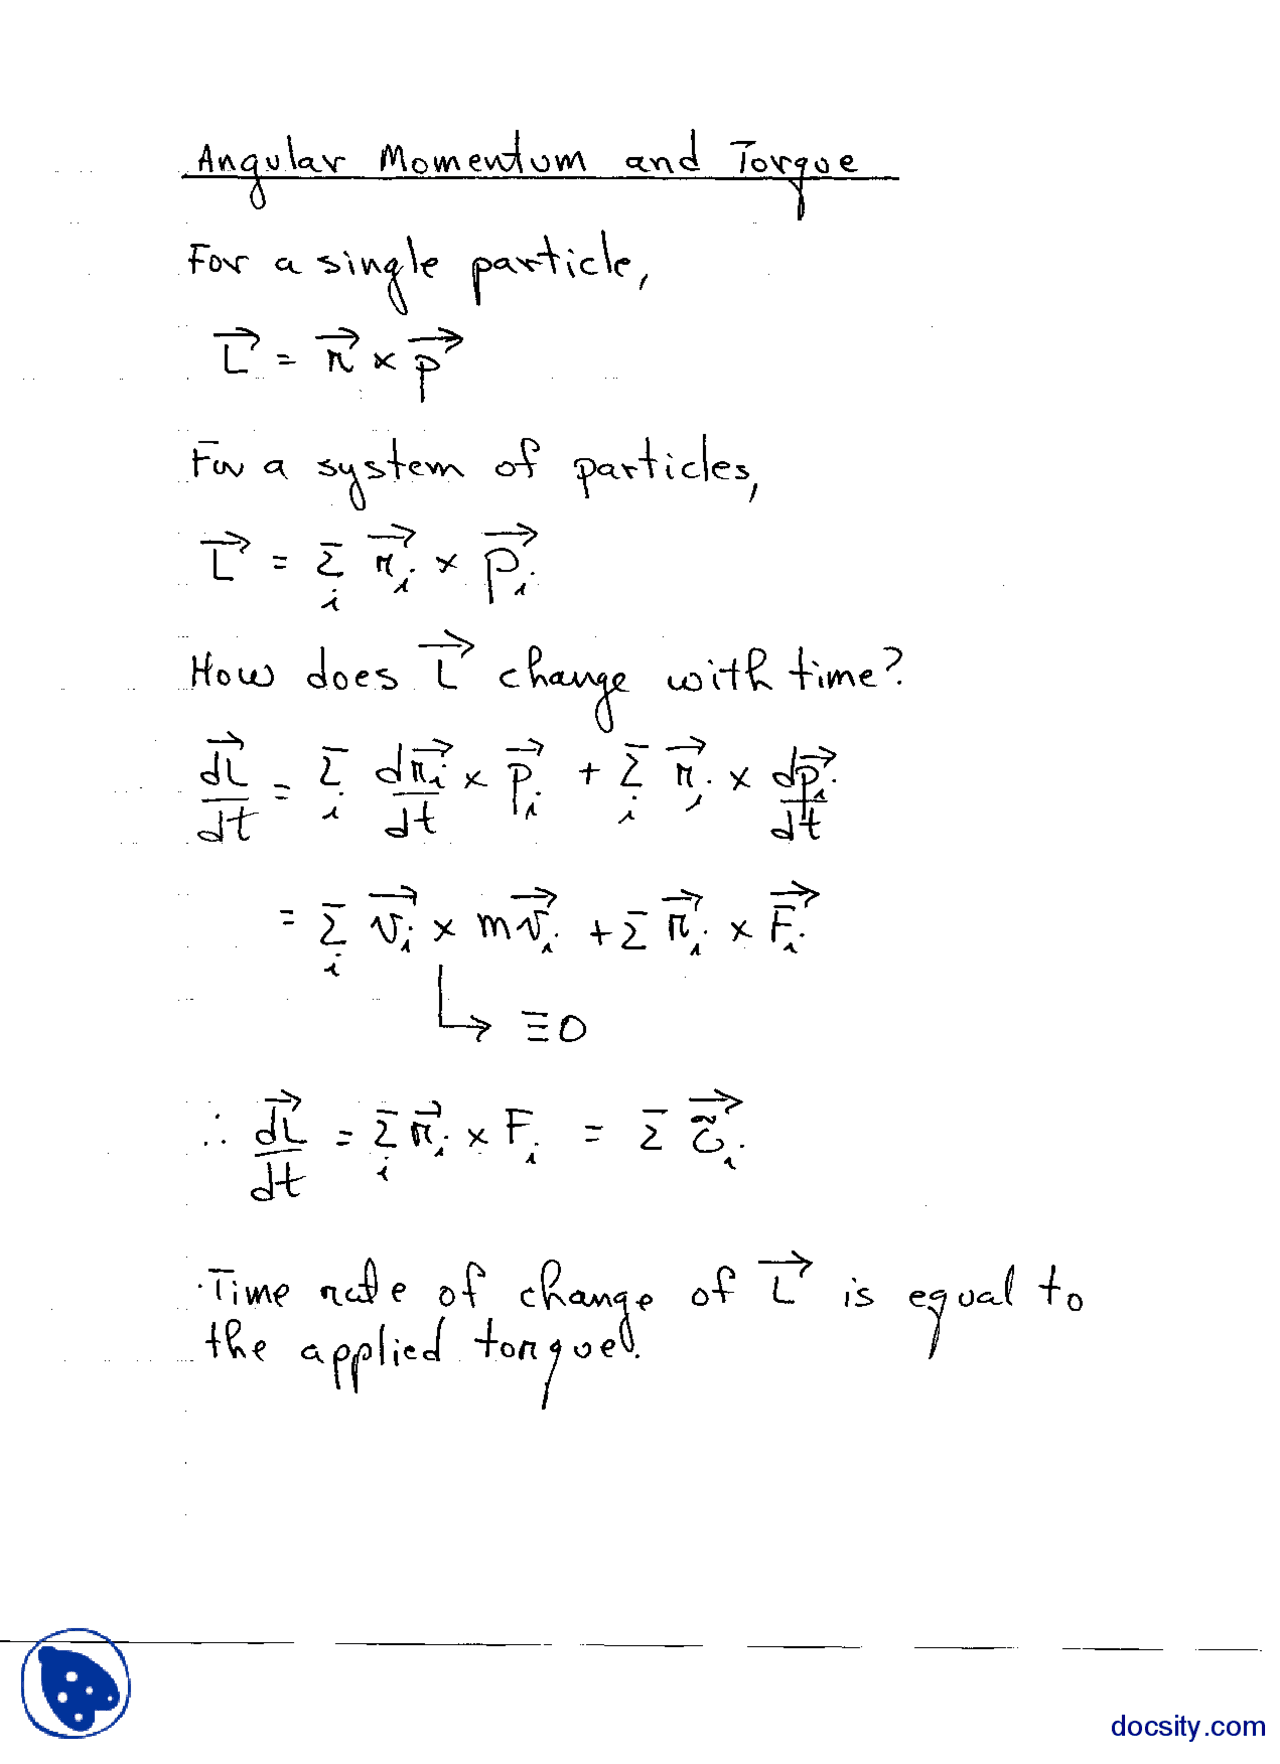 Angular Momentum and Torque
For a single particle,
L⃗ = r⃗ × p⃗
For a system of particles,
L⃗ = Σ_i r⃗_i × p⃗_i
How does L⃗ change with time?
dL⃗/dt = Σ_i dr⃗_i/dt × p⃗_i + Σ_i r⃗_i × dp⃗_i/dt
= Σ_i v⃗_i × mv⃗_i + Σ r⃗_i × F⃗_i
↳ ≡ 0
∴ dL⃗/dt = Σ_i r⃗_i × F_i = Σ τ⃗_i
Time rate of change of L⃗ is equal to
the applied torque.
docsity.com